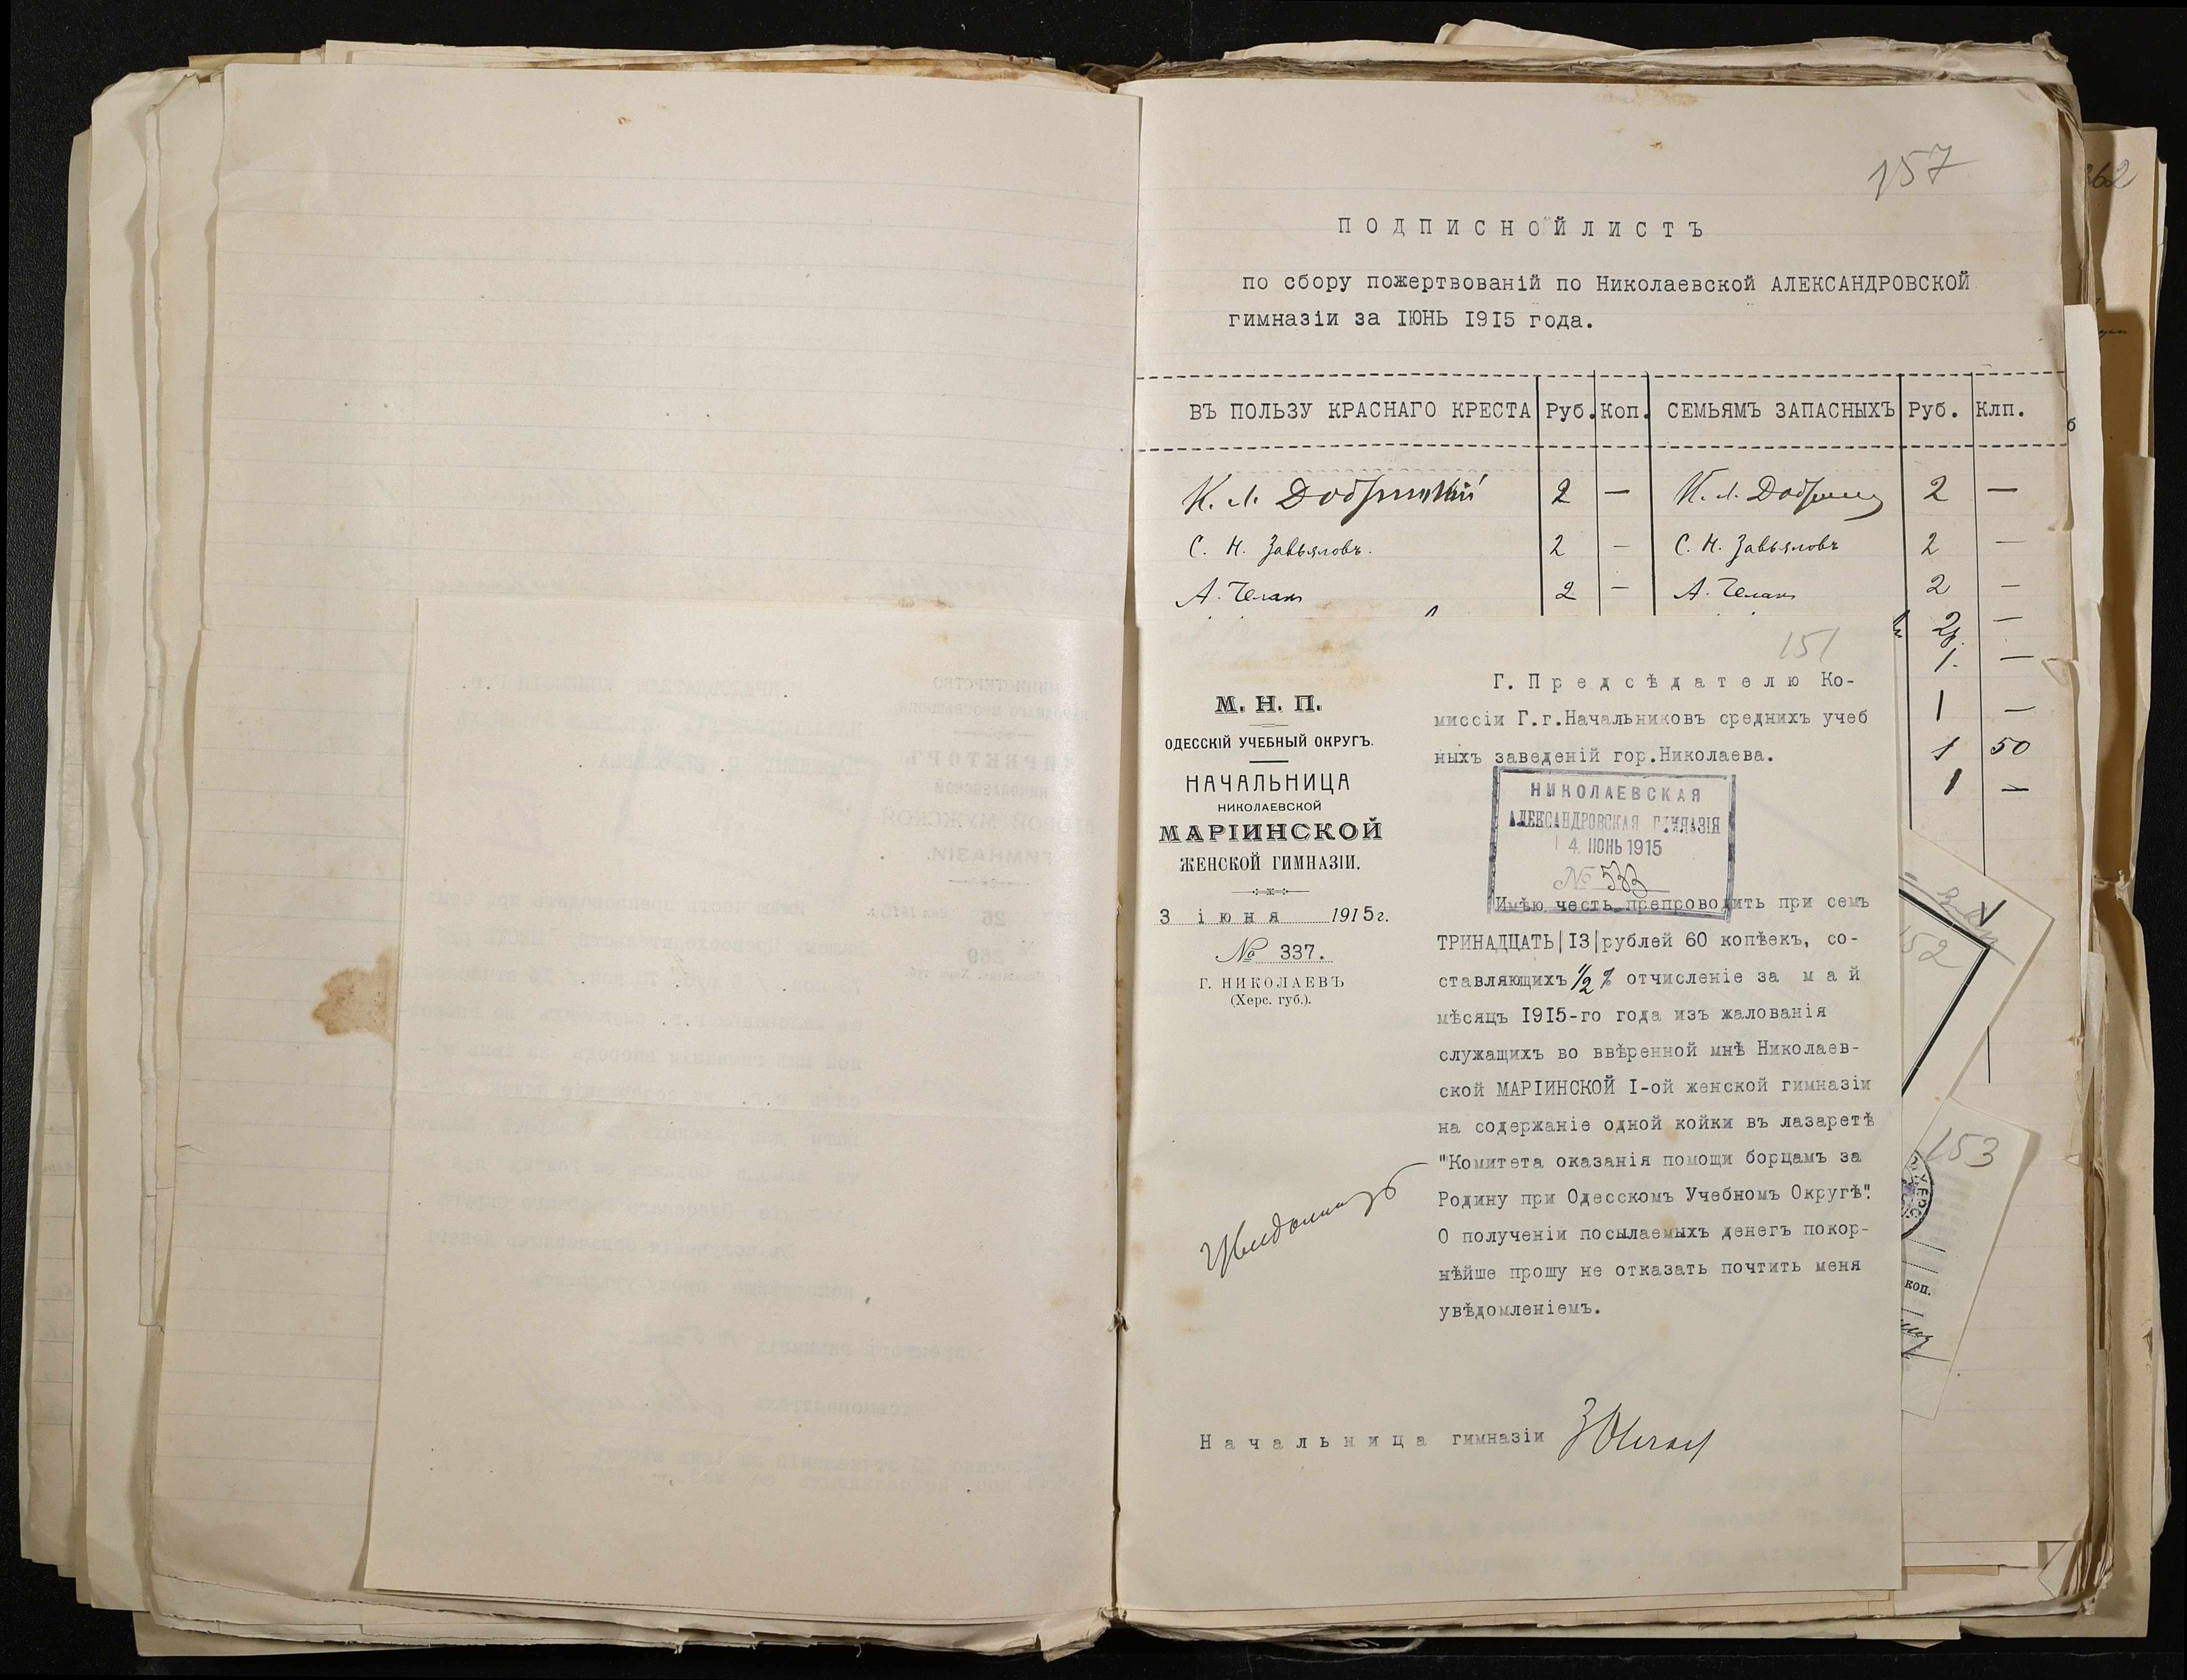 157
ПОДПИСНОЙ ЛИСТЪ
по сбору пожертвованій по Николаевской АЛЕКСАНДРОВСКОЙ
гимназіи за IЮНЬ I9I5 года.
ВЪ ПОЛЬЗУ КРАСНАГО КРЕСТА Руб. Коп. СЕМЬЯМЪ ЗАПАСНЫХЪ Руб. Клп.
К. Л. 2 — К. Л. 2 —
С. Н. Завьяловъ. 2 — С. Н. Завьяловъ 2 —
А. 2 — А. 2 —
2 —
1. —
1 —
1 50
1 —
151
М. Н. П.
ОДЕССКІЙ УЧЕБНЫЙ ОКРУГЪ.
НАЧАЛЬНИЦА
НИКОЛАЕВСКОЙ
МАРІИНСКОЙ
ЖЕНСКОЙ ГИМНАЗІИ.
3 іюня 1915 г.
№ 337.
Г. НИКОЛАЕВЪ
(Херс. губ.).
Г. Предсѣдателю Ко-
миссіи Г.г.Начальниковъ среднихъ учеб
ныхъ заведеній гор.Николаева.
НИКОЛАЕВСКАЯ
АЛЕКСАНДРОВСКАЯ ГИМНАЗІЯ
4 ІЮНЬ 1915
№ 533
Имѣю честь препроводить при семъ
ТРИНАДЦАТЬ|I3|рублей 60 копѣекъ, со-
ставляющихъ 1/2 % отчисленіе за май
мѣсяцъ I9I5-го года изъ жалованія
служащихъ во ввѣренной мнѣ Николаев-
ской МАРІИНСКОЙ I-ой женской гимназіи
на содержаніе одной койки въ лазаретѣ
"Комитета оказанія помощи борцамъ за
Родину при Одесскомъ Учебномъ Округѣ".
О полученіи посылаемыхъ денегъ покор-
нѣйше прошу не отказать почтить меня
увѣдомленіемъ.
Начальница гимназіи
152
153
коп.